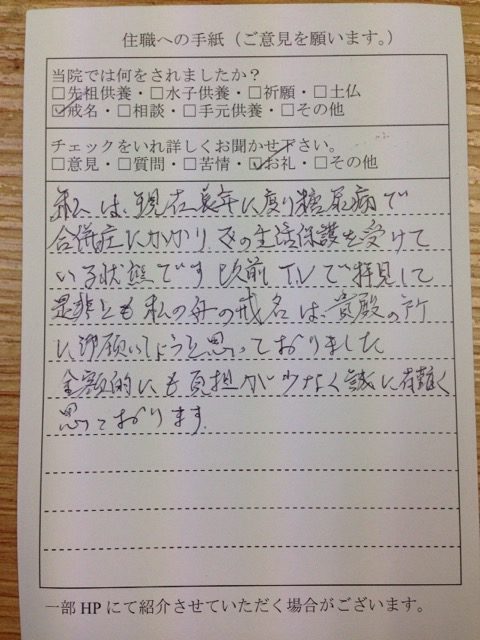 住職への手紙（ご意見を願います。）
当院では何をされましたか？
□先祖供養・□水子供養・□祈願・□土仏
☑戒名・□相談・□手元供養・□その他
チェックをいれ詳しくお聞かせ下さい。
□意見・□質問・□苦情・☑お礼・□その他
私は、現在長年に度り糖尿病で
合併症にかかり 生活保護を受けて
いる状態です 以前TVで拝見して
是非とも私の母の戒名は、貴殿の所
に御願いしようと思っておりました
金額的にも負担が少なく誠に有難く
思っております.
一部 HP にて紹介させていただく場合がございます。